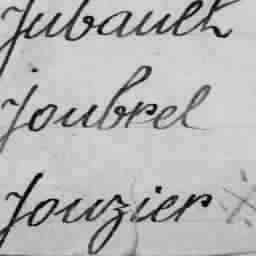 Jubault
Joubrel
Jouzier